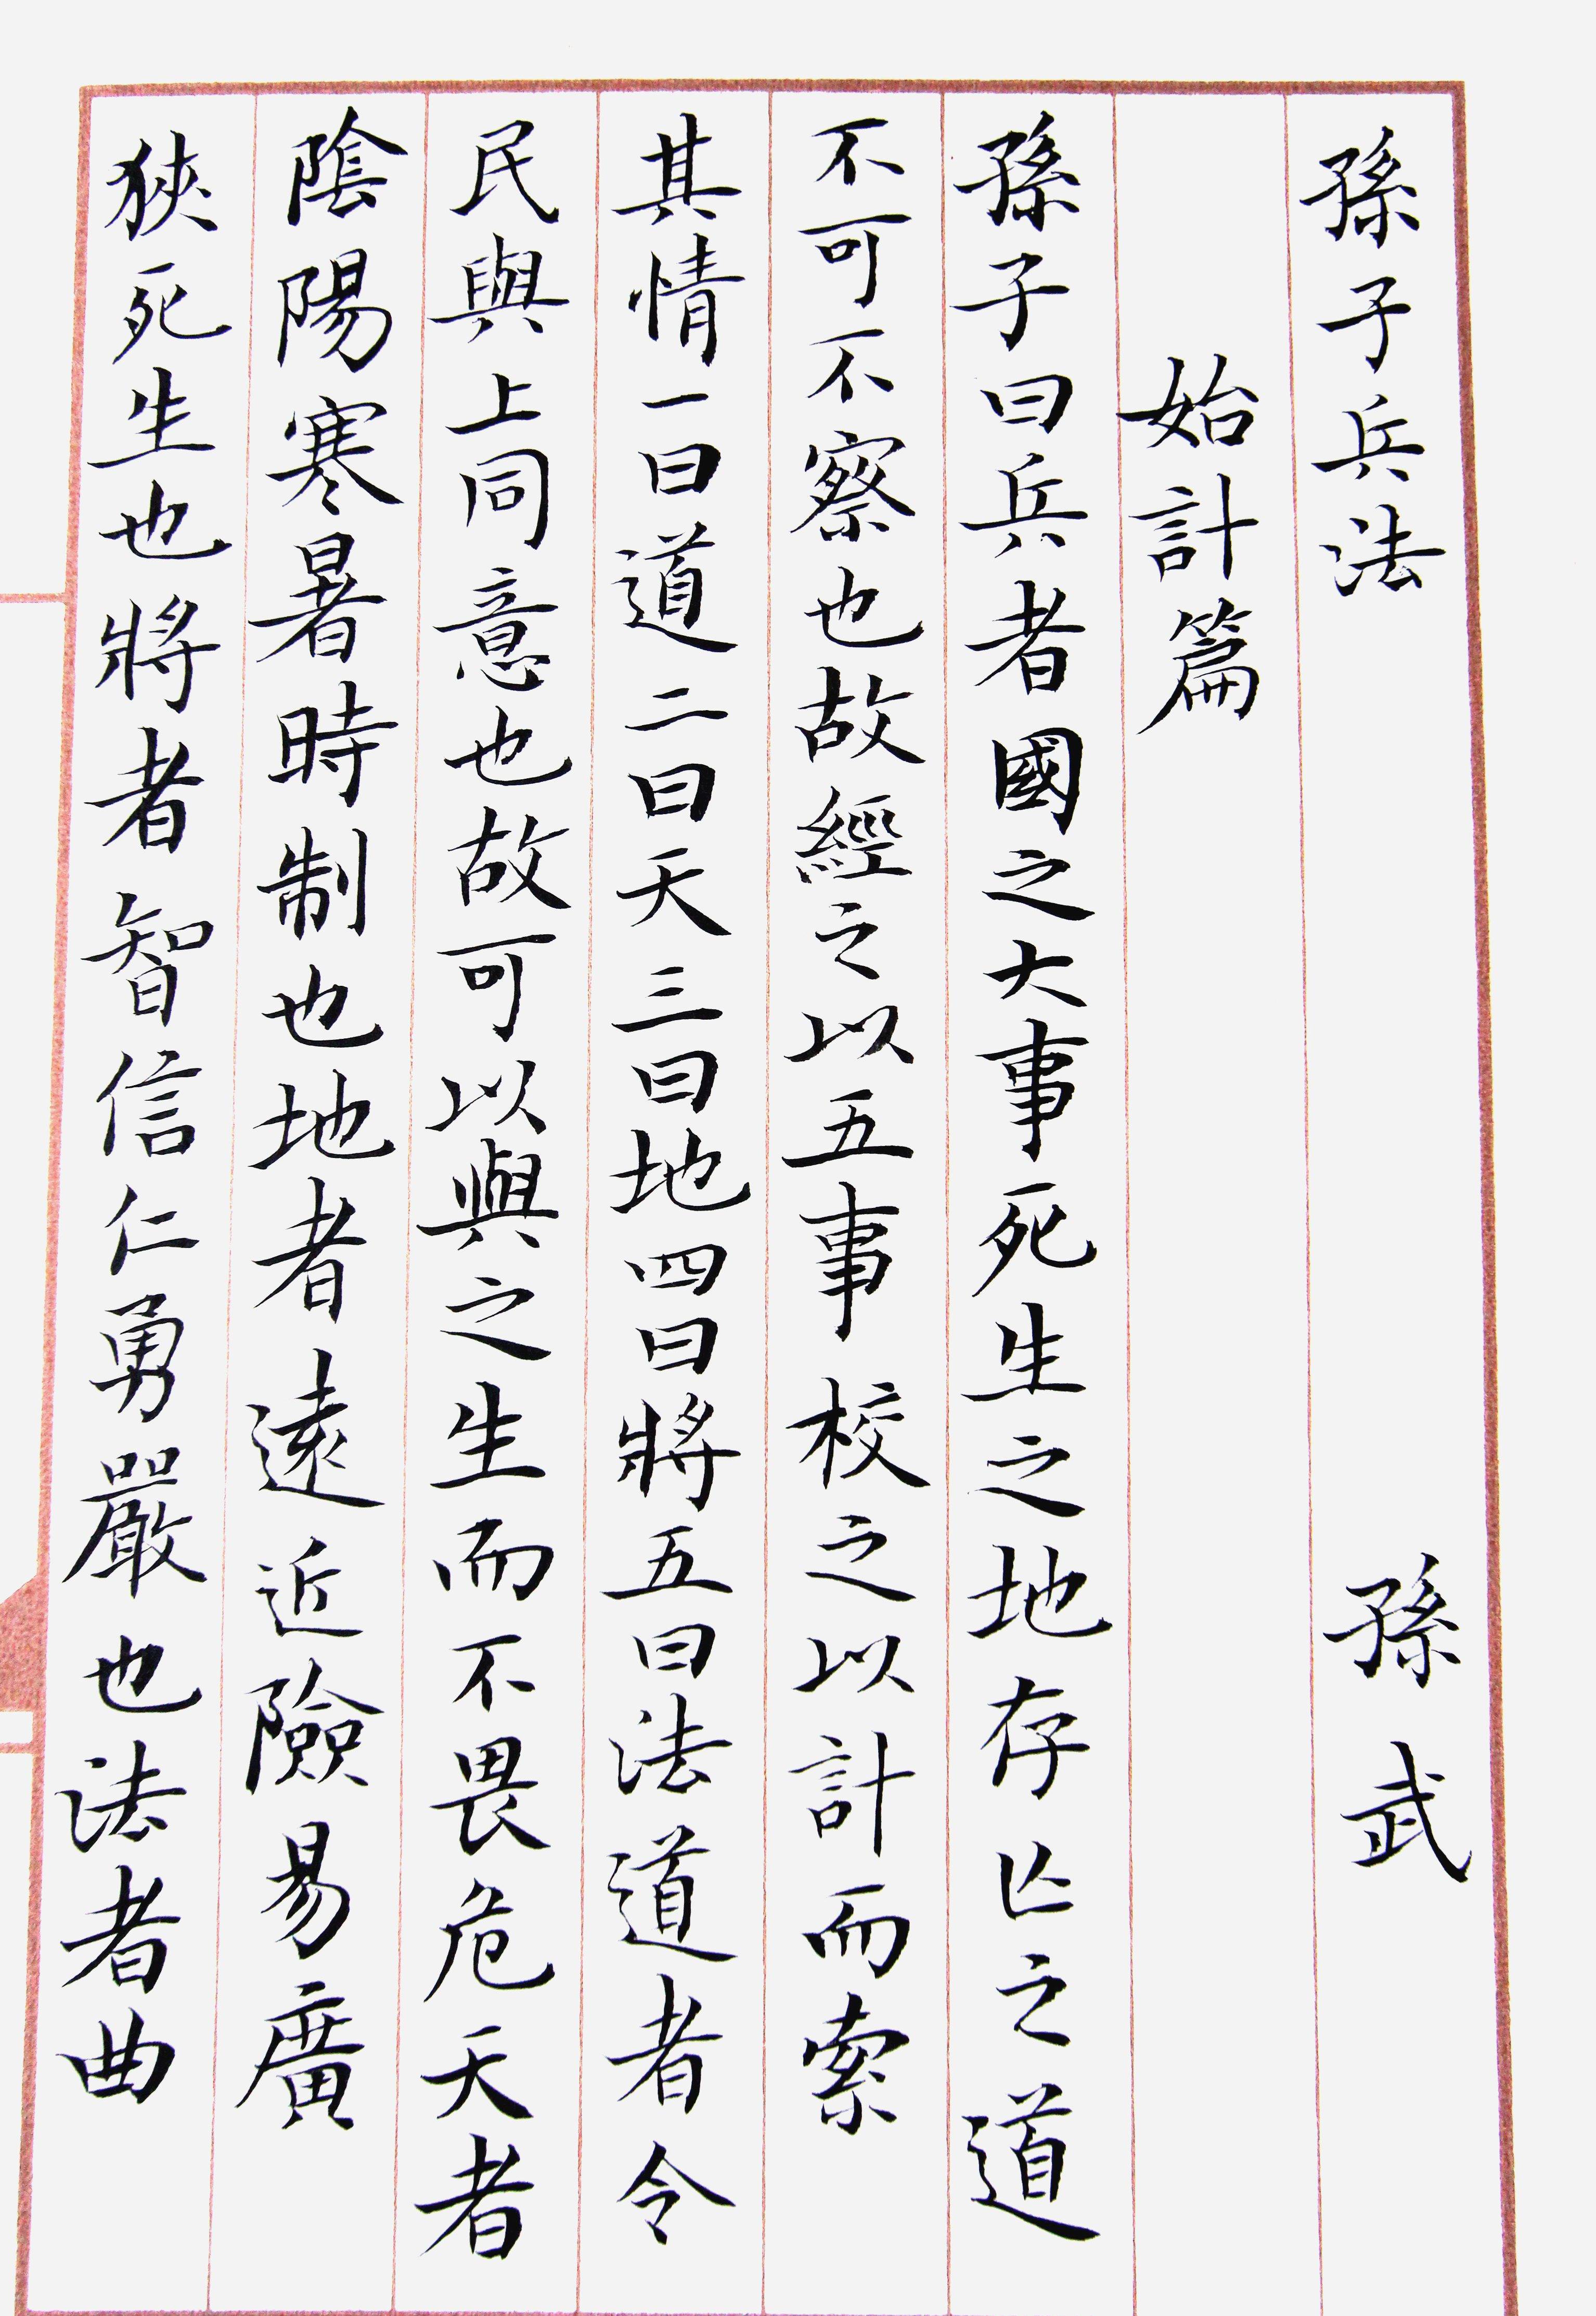 孫子兵法 孫武
始計篇
孫子曰兵者國之大事死生之地存亡之道
不可不察也故經之以五事校之以計而索
其情一曰道二曰天三曰地四曰將五曰法道者令
民與上同意也故可以與之生而不畏危天者
陰陽寒暑時制也地者遠近險易廣
狹死生也將者智信仁勇嚴也法者曲